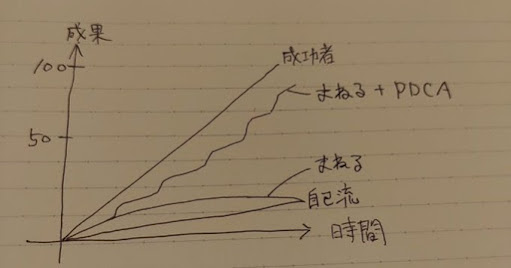 成果
100
成功者
まねる + PDCA
50
まねる
自己流
時間